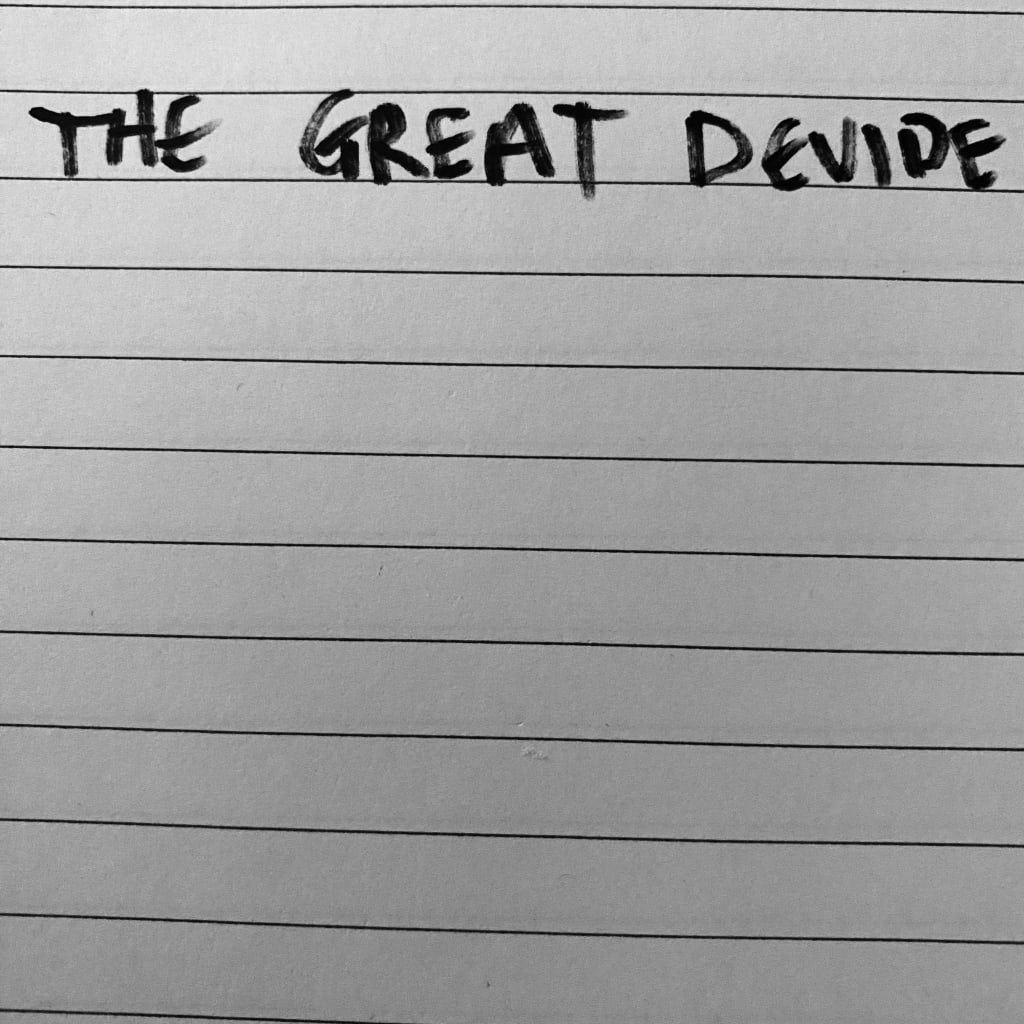 THE GREAT DEVIDE